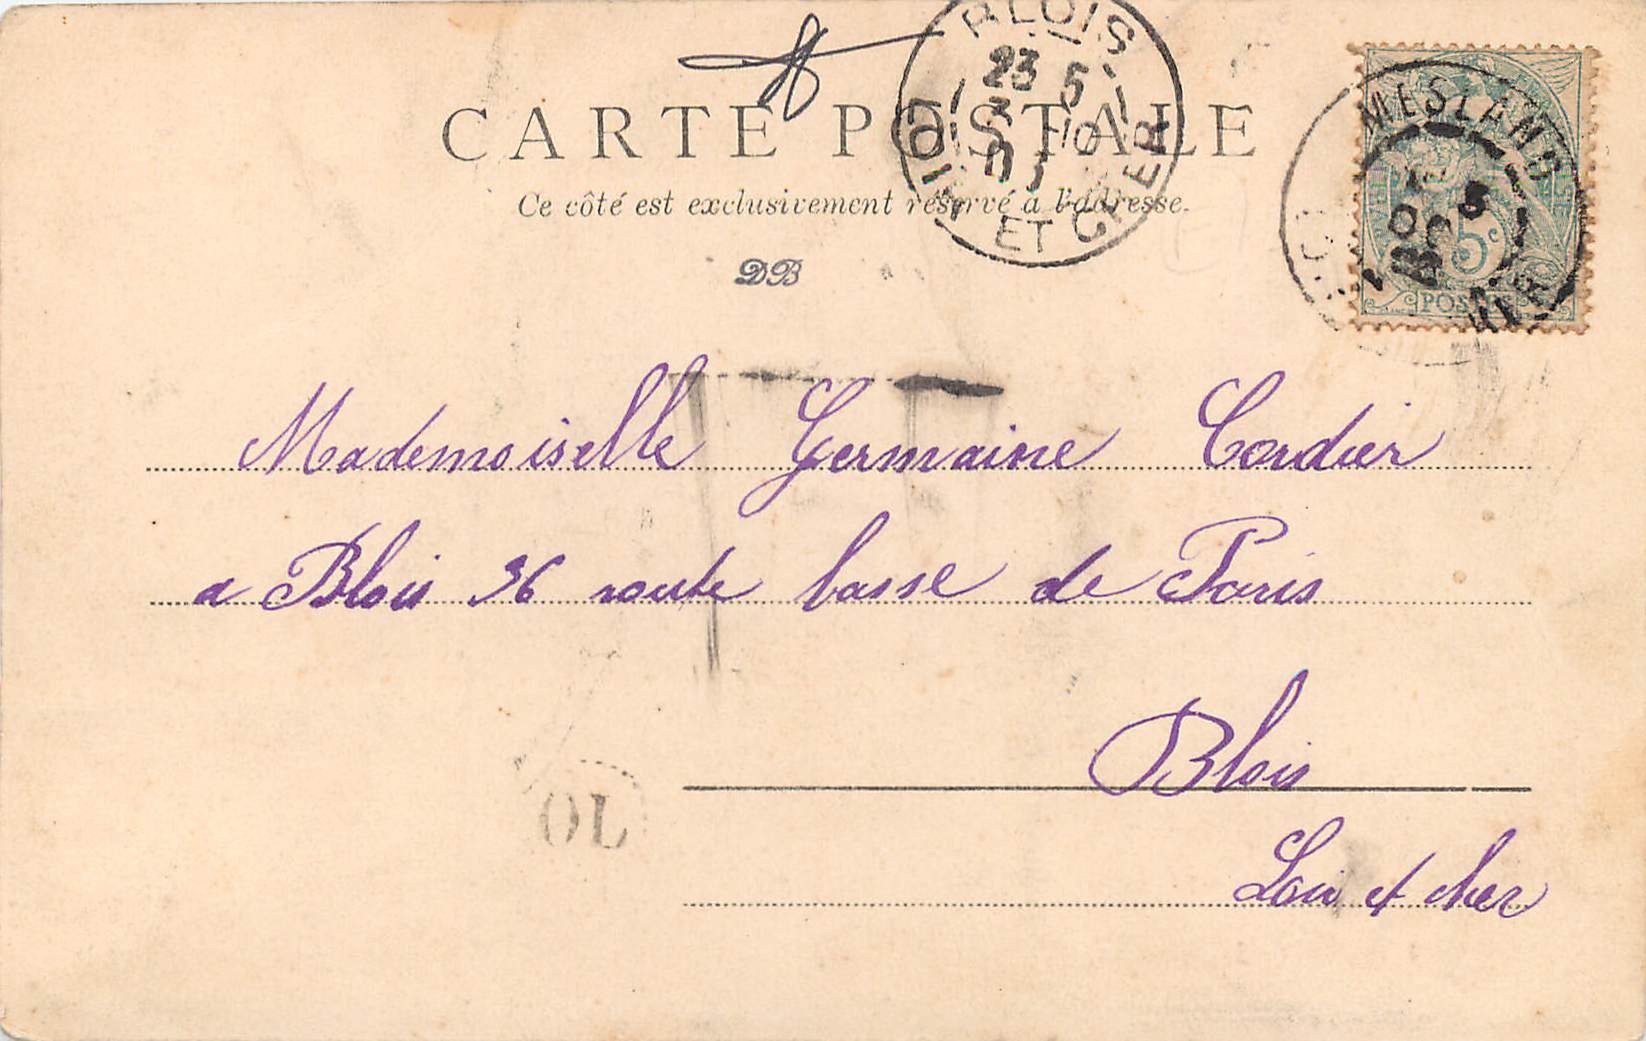 BLOIS
23 5
LOIR ET CHER
CARTE POSTALE
Ce côté est exclusivement réservé à l'adresse.
DB
MESLAND
5c
POSTES
Mademoiselle Germaine Cordier
a Blois 36 route basse de Paris
Blois
Loir et cher
OL